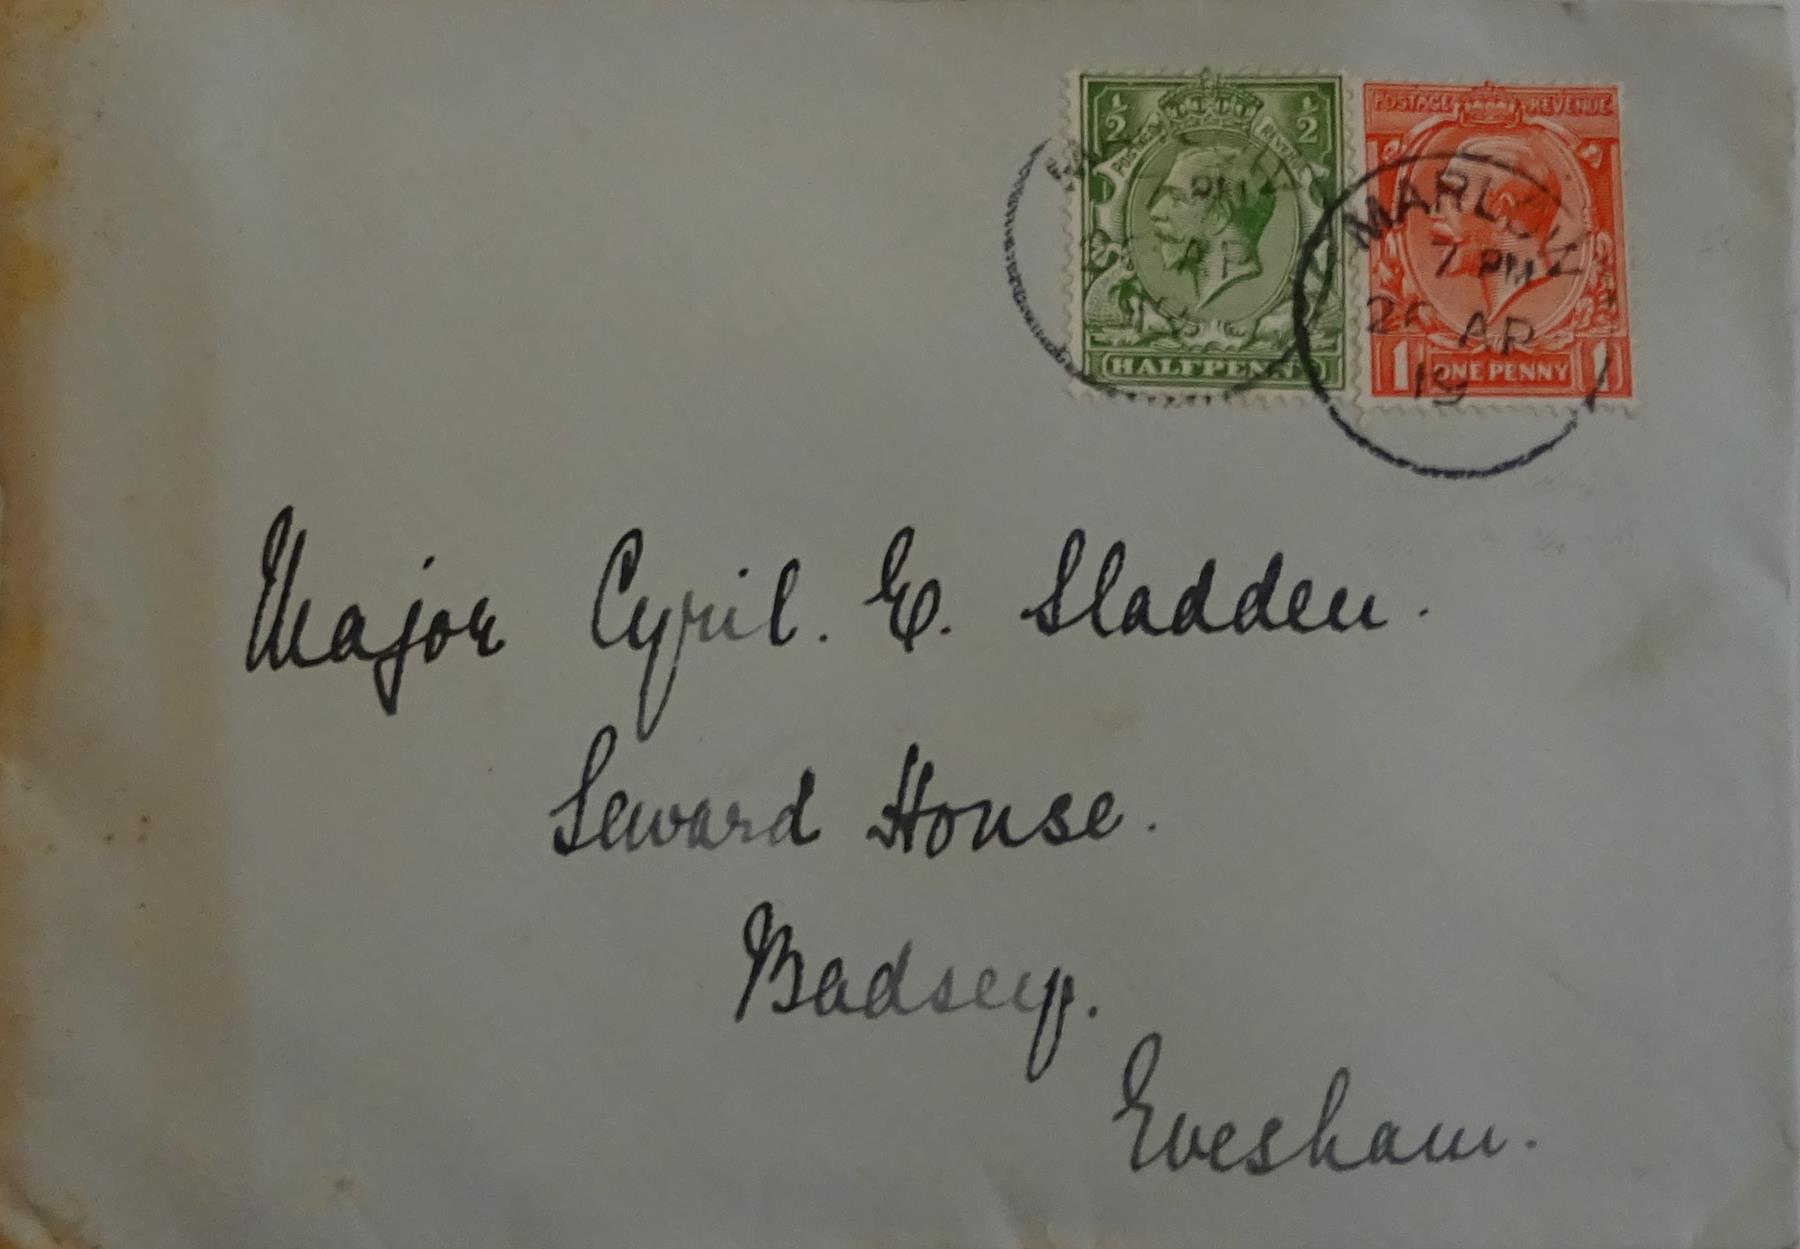 ½ ½
POSTAGE REVENUE
HALFPENNY
PM
AP
POSTAGE REVENUE
MARLOW
7 PM
AP
19
1 ONE PENNY 1
Major Cyril. E. Sladden.
Seward House.
Badsey.
Evesham.